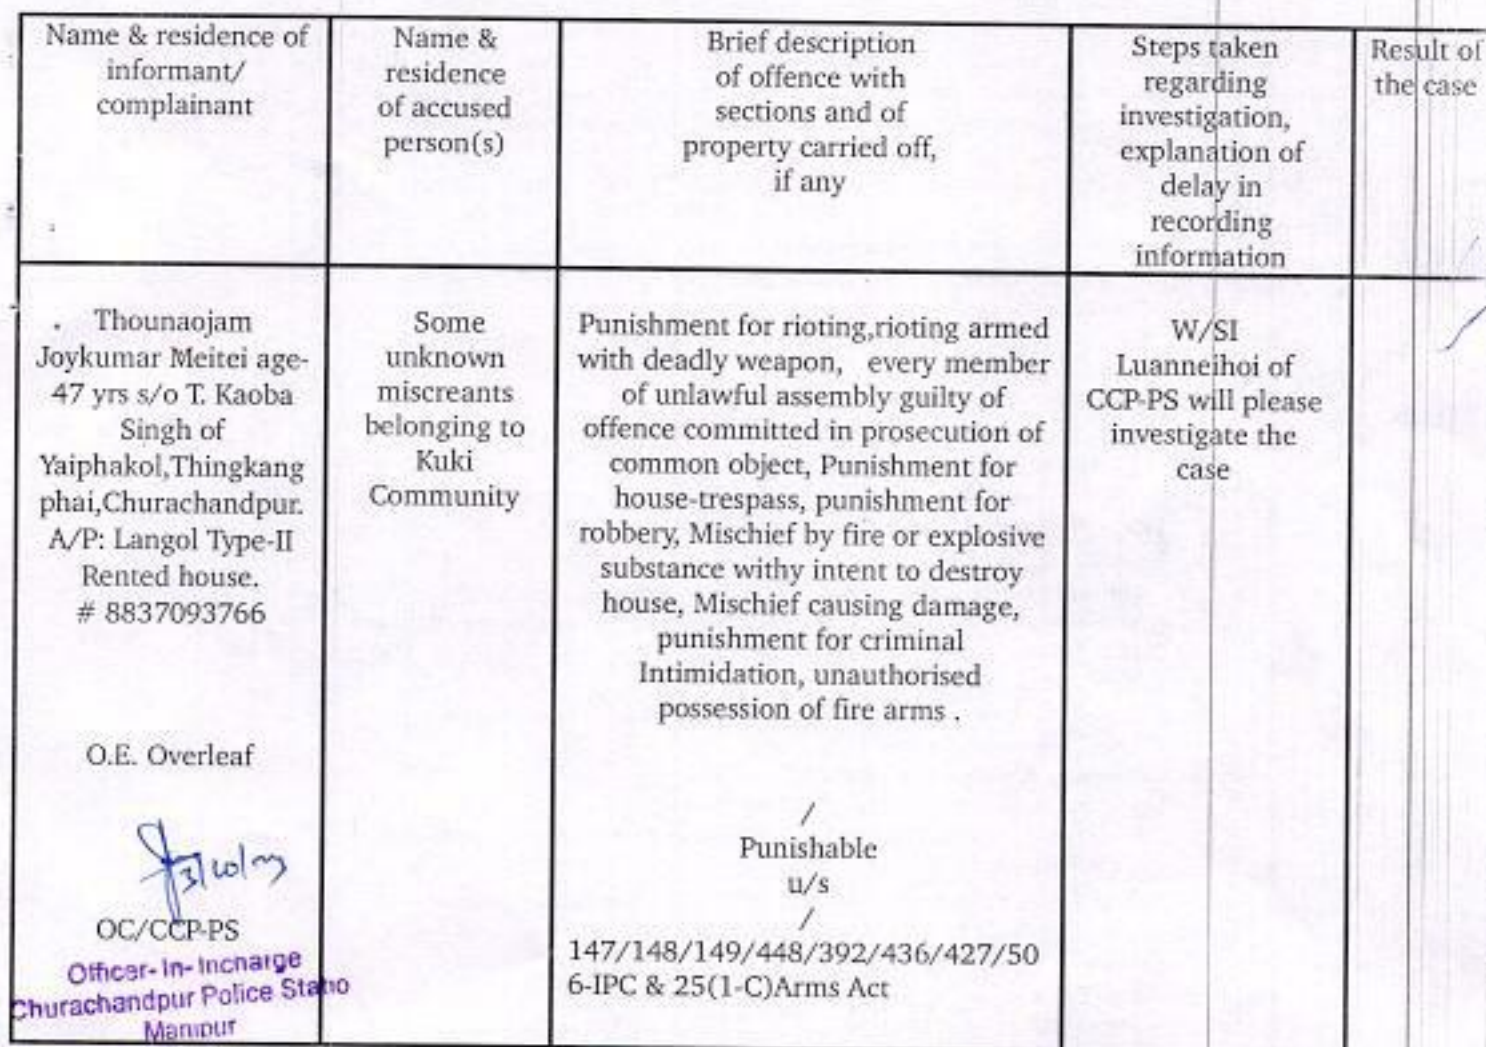 Name & residence of
informant/
complainant
Name &
residence
of accused
person(s)
Brief description
of offence with
sections and of
property carried off,
if any
Steps taken
regarding
investigation,
explanation of
delay in
recording
information
Result of
the case
Thounaojam
Joykumar Meitei age-
47 yrs s/o T. Kaoba
Singh of
Yaiphakol,Thingkang
phai,Churachandpur.
A/P: Langol Type-II
Rented house.
# 8837093766
O.E. Overleaf
OC/CCP-PS
Officer-In-Incharge
Churachandpur Police Statio
Manipur
Some
unknown
miscreants
belonging to
Kuki
Community
Punishment for rioting,rioting armed
with deadly weapon, every member
of unlawful assembly guilty of
offence committed in prosecution of
common object, Punishment for
house-trespass, punishment for
robbery, Mischief by fire or explosive
substance withy intent to destroy
house, Mischief causing damage,
punishment for criminal
Intimidation, unauthorised
possession of fire arms .
/
Punishable
u/s
/
147/148/149/448/392/436/427/50
6-IPC & 25(1-C)Arms Act
W/SI
Luanneihoi of
CCP-PS will please
investigate the
case